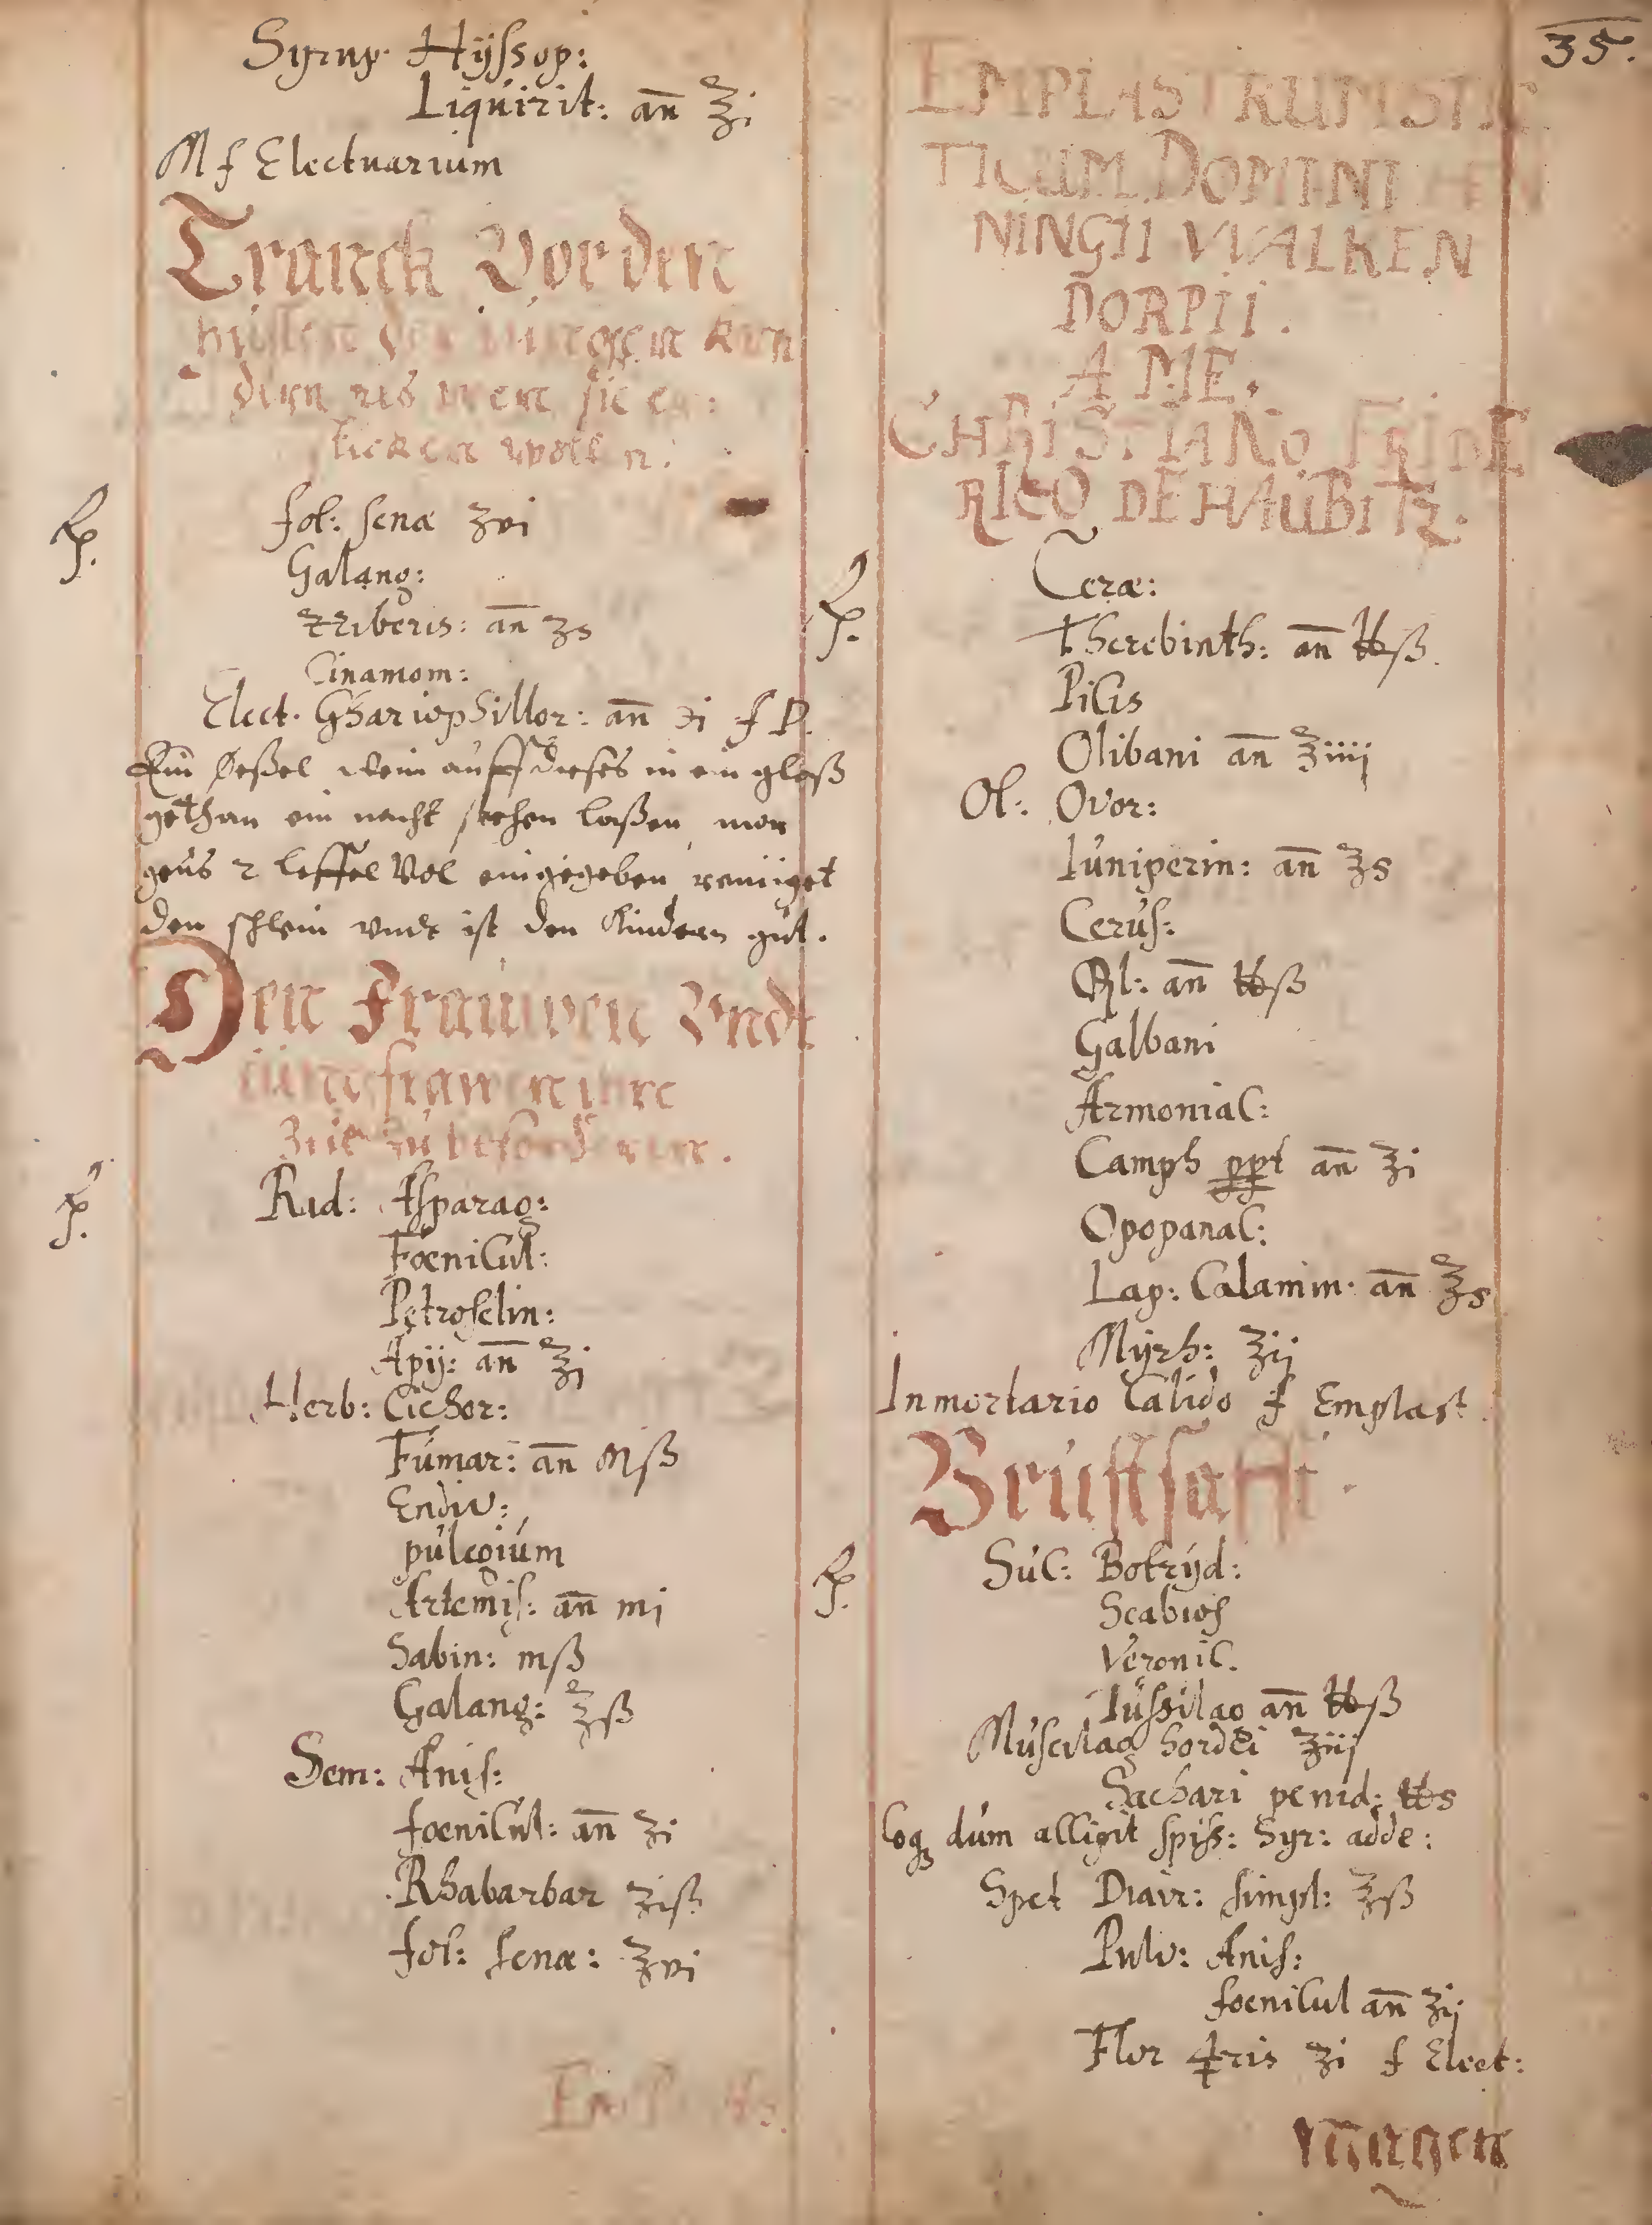 Syrup. Hÿssop:
Liquirit: an̄ ℥i
M f Electuarium
Tranck Vor den
husten der jungen kin
dern als wen sie er:
sticken wollen.
℞. fol: senæ ʒvi
Galang:
Zziberis: an̄ ʒs
Cinamom:
Elect. Ghariophillor: an̄ ℈i f P.
Ein Nößel wein auff dieses in ein glaß
gethan ein nacht stehen laßen, mor
gens 2 leffel Vol eingegeben reiniget
den schleim undt ist den Kindern gut.
Den Frauwen Vndt
Jungfrawen ihre
Zeit zu befordern.
℞. Rad: Asparag:
Foenicul:
Petroselin:
Apij: an̄ ℥j
Herb: Cichor:
Fumar: an̄ Mß
Endiv:
pulegium
Artemis: an̄ mj
Sabin: mß
Galang: ℥ß
Sem: Anis:
foenicul: an̄ ʒi
Rhabarbar ʒiß
fol: senæ: ʒvi
35.
EMPLASTRUM STIC
TICUM DOMINI HEN
NINGII VVALKEN
DORPII.
A ME.
CHRISTIANO FRIDE
RICO DE HAUBITZ.
℞. Ceræ:
Therebinth: an̄ ℔ß.
Picis
Olibani an̄ ℥iiij
Ol: Ovor:
Iuniperin: an̄ ℥s
Cerus:
Ol: an̄ ℔ß
Galbani
Armoniac:
Camph ppt an̄ ʒi
Opopanac:
Lap: Calamin. an̄ ℥s
Mÿrh: ʒij
In mortario Calido f Emplast.
Brustsafft.
℞. Suc: Botrÿd:
Scabios
Veronic.
Tussilag an̄ ℔ß
Muscilag hordei ʒiij
Sachari penid: ℔s
Coq dum alligit spiss: Syr: adde:
Spet Diair: simpl: ℥ß
Pulv: Anis:
foenicul an̄ ʒij
Flor ♃ris ʒi f Elect:
Magen